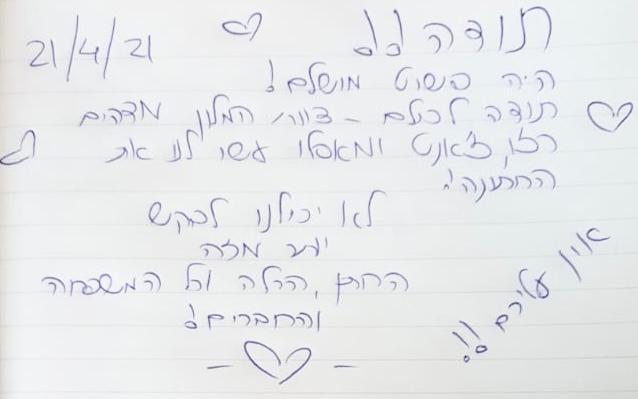 21/4/21
תודה!!
היה פשוט מושלם!
תודה לכולם - צוות המלון מדהים
ז'אנט ומאסלו עשו לנו את
החתונה!
לא יכולנו לבקש
יותר מזה
החתן, הכלה וכל המשפחה
והחברים!
אין עליכם!!